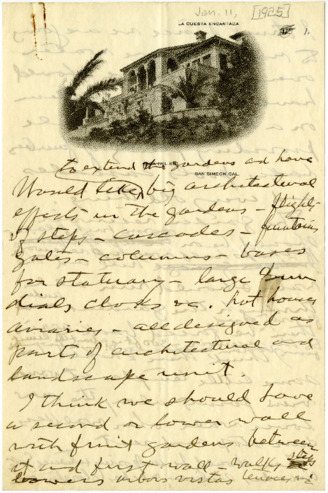 Jan. 11, [1925]
LA CUESTA ENCANTADA
1.
SAN SIMEON, CAL.
to extend the gardens and have
Would like big architectural
effects in the gardens - flights
of steps - cascades - fountains
gates - columns - bases
for statuary - large sun
dials, clocks &c. hot houses
aviaries - all designed as
parts of architectural and
landscape unit.
I think we should have
a second or lower wall
with fruit gardens between
it and first wall - walks steps
bowers arbors vistas terraces